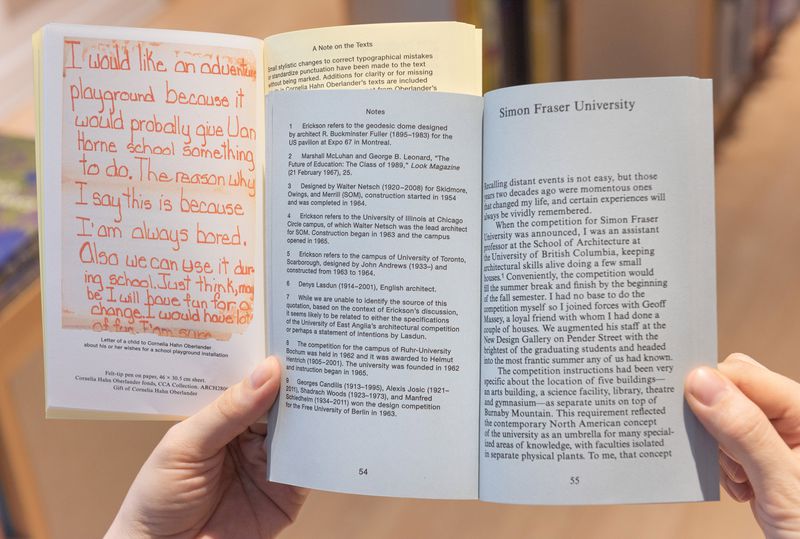 I would like an adventure
playground because it
would probally give Van
Horne school something
to do. The reason why
I say this is because
I'am always bored.
Also we can use it dur
ing school. Just think, may
be I will have fun for a
change. I would have lot
of fun. I'am sure
Letter of a child to Cornelia Hahn Oberlander
about his or her wishes for a school playground installation
Felt-tip pen on paper, 46 × 30.5 cm sheet.
Cornelia Hahn Oberlander fonds, CCA Collection. ARCH280
Gift of Cornelia Hahn Oberlander
A Note on the Texts
Small stylistic changes to correct typographical mistakes
or standardize punctuation have been made to the text
without being marked. Additions for clarity or for missing
Cornelia Hahn Oberlander's texts are included
from Oberlander's
Notes
1 Erickson refers to the geodesic dome designed
by architect R. Buckminster Fuller (1895–1983) for the
US pavilion at Expo 67 in Montreal.
2 Marshall McLuhan and George B. Leonard, "The
Future of Education: The Class of 1989," Look Magazine
(21 February 1967), 25.
3 Designed by Walter Netsch (1920–2008) for Skidmore,
Owings, and Merrill (SOM), construction started in 1954
and was completed in 1964.
4 Erickson refers to the University of Illinois at Chicago
Circle campus, of which Walter Netsch was the lead architect
for SOM. Construction began in 1963 and the campus
opened in 1965.
5 Erickson refers to the campus of University of Toronto,
Scarborough, designed by John Andrews (1933–) and
constructed from 1963 to 1964.
6 Denys Lasdun (1914–2001), English architect.
7 While we are unable to identify the source of this
quotation, based on the context of Erickson's discussion,
it seems likely to be related to either the specifications
of the University of East Anglia's architectural competition
or perhaps a statement of intentions by Lasdun.
8 The competition for the campus of Ruhr-University
Bochum was held in 1962 and it was awarded to Helmut
Hentrich (1905–2001). The university was founded in 1962
and instruction began in 1965.
9 Georges Candilis (1913–1995), Alexis Josic (1921–
2011), Shadrach Woods (1923–1973), and Manfred
Schiedhelm (1934–2011) won the design competition
for the Free University of Berlin in 1963.
54
Simon Fraser University
Recalling distant events is not easy, but those
years two decades ago were momentous ones
that changed my life, and certain experiences will
always be vividly remembered.
When the competition for Simon Fraser
University was announced, I was an assistant
professor at the School of Architecture at
the University of British Columbia, keeping
architectural skills alive doing a few small
houses.¹ Conveniently, the competition would
fill the summer break and finish by the beginning
of the fall semester. I had no base to do the
competition myself so I joined forces with Geoff
Massey, a loyal friend with whom I had done a
couple of houses. We augmented his staff at the
New Design Gallery on Pender Street with the
brightest of the graduating students and headed
into the most frantic summer any of us had known.
The competition instructions had been very
specific about the location of five buildings—
an arts building, a science facility, library, theatre
and gymnasium—as separate units on top of
Burnaby Mountain. This requirement reflected
the contemporary North American concept
of the university as an umbrella for many special-
ized areas of knowledge, with faculties isolated
in separate physical plants. To me, that concept
55